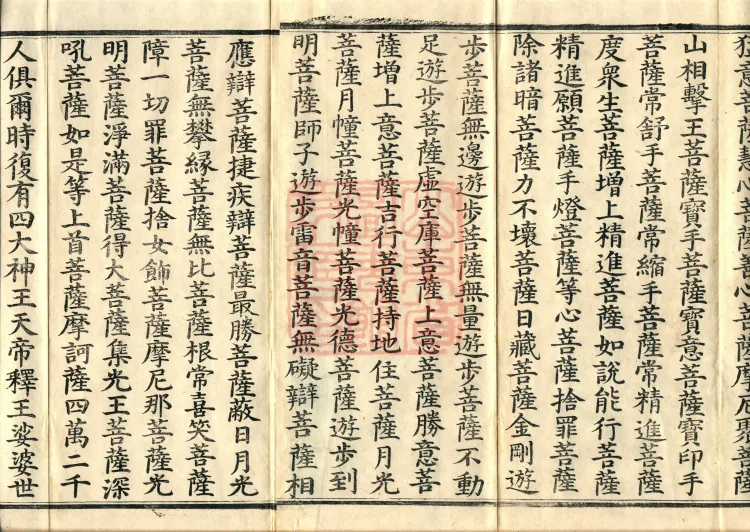 意菩薩慧心菩薩善心菩薩摩尼聚菩薩
山相擊王菩薩寶手菩薩寶意菩薩寶印手
菩薩常舒手菩薩常縮手菩薩常精進菩薩
度衆生菩薩增上精進菩薩如說能行菩薩
精進願菩薩手燈菩薩等心菩薩捨罪菩薩
除諸暗菩薩力不壞菩薩日藏菩薩金剛遊
步菩薩無邊遊步菩薩無量遊步菩薩不動
足遊步菩薩虛空庫菩薩上意菩薩勝意菩
薩增上意菩薩吉行菩薩持地住菩薩月光
菩薩月幢菩薩光幢菩薩光德菩薩遊步到
明菩薩師子遊步雷音菩薩無礙辯菩薩相
應辯菩薩捷疾辯菩薩最勝菩薩蔽日月光
菩薩無攀緣菩薩無比菩薩根常喜笑菩薩
障一切罪菩薩捨女飾菩薩摩尼那菩薩光
明菩薩淨滿菩薩得大菩薩集光王菩薩深
吼菩薩如是等上首菩薩摩訶薩四萬二千
人俱爾時復有四大神王天帝釋王娑婆世